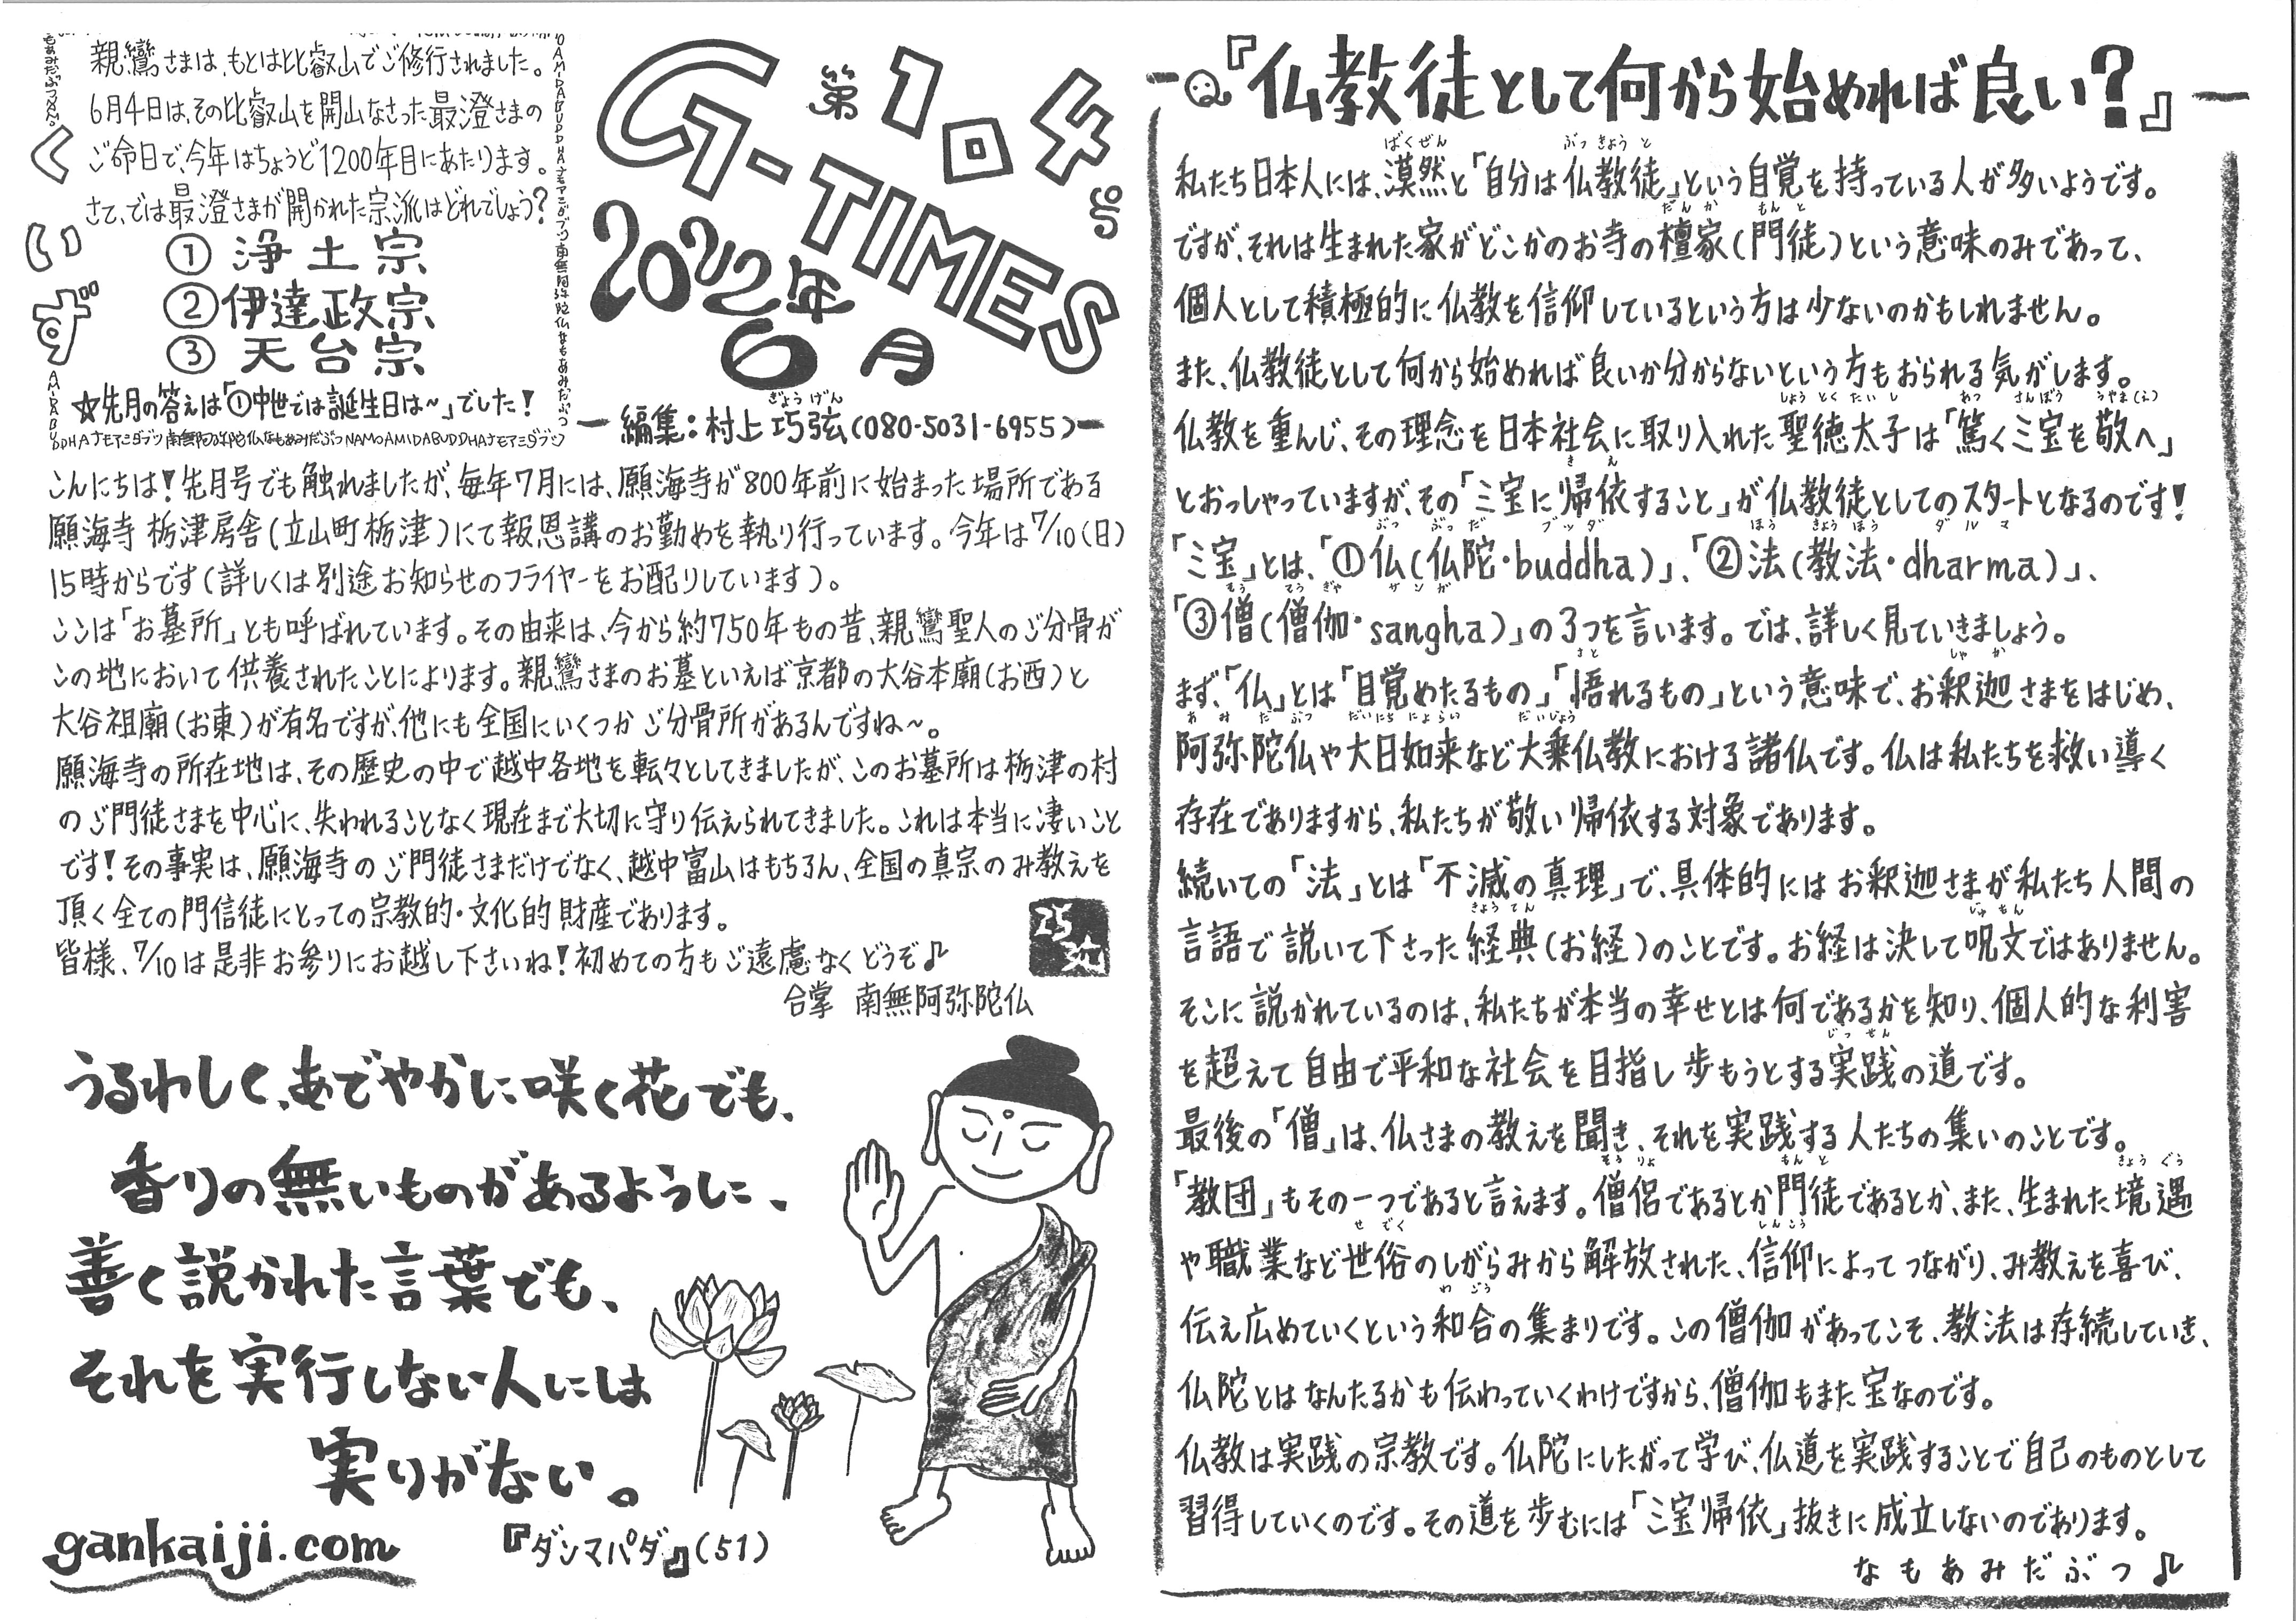 親鸞さまは、もとは比叡山でご修行されました。
6月4日は、その比叡山を開山なさった最澄さまの
ご命日で、今年はちょうど1200年目にあたります。
さて、では最澄さまが開かれた宗派はどれでしょう?
くいず
① 浄土宗
② 伊達政宗
③ 天台宗
☆先月の答えは「①中世では誕生日は~」でした!
G-TIMES
第104号
2022年
6月
ー編集:村上巧弦(080-5031-6955)ー
ぎょうげん
こんにちは!先月号でも触れましたが、毎年7月には、願海寺が800年前に始まった場所である
願海寺 栃津房舎(立山町栃津)にて報恩講のお勤めを執り行っています。今年は7/10(日)
15時からです(詳しくは別途お知らせのフライヤーをお配りしています)。
ここは「お墓所」とも呼ばれています。その由来は、今から約750年もの昔、親鸞聖人のご分骨が
この地において供養されたことによります。親鸞さまのお墓といえば京都の大谷本廟(お西)と
大谷祖廟(お東)が有名ですが、他にも全国にいくつかご分骨所があるんですね~。
願海寺の所在地は、その歴史の中で越中各地を転々としてきましたが、このお墓所は栃津の村
のご門徒さまを中心に、失われることなく現在まで大切に守り伝えられてきました。これは本当に凄いこと
です!その事実は、願海寺のご門徒さまだけでなく、越中富山はもちろん、全国の真宗のみ教えを
頂く全ての門信徒にとっての宗教的・文化的財産であります。
皆様、7/10は是非お参りにお越し下さいね!初めての方もご遠慮なくどうぞ♪
合掌 南無阿弥陀仏
うるわしく、あでやかに咲く花でも、
香りの無いものがあるように、
善く説かれた言葉でも、
それを実行しない人には
実りがない。
『ダンマパダ』(51)
gankaiji.com
『仏教徒として何から始めれば良い?』
ばくぜん ぶっきょうと
私たち日本人には、漠然と「自分は仏教徒」という自覚を持っている人が多いようです。
だんか もんと
ですが、それは生まれた家がどこかのお寺の檀家(門徒)という意味のみであって、
個人として積極的に仏教を信仰しているという方は少ないのかもしれません。
また、仏教徒として何から始めれば良いか分からないという方もおられる気がします。
しょうとくたいし あつ さんぼう うやま(ふ)
仏教を重んじ、その理念を日本社会に取り入れた聖徳太子は「篤く三宝を敬へ」
きえ
とおっしゃっていますが、その「三宝に帰依すること」が仏教徒としてのスタートとなるのです!
ぶつ ぶっだ ブッダ ほう きょうほう ダルマ
「三宝」とは、「①仏(仏陀・buddha)」、「②法(教法・dharma)」、
そう そうぎゃ サンガ
「③僧(僧伽・sangha)」の3つを言います。では、詳しく見ていきましょう。
さと しゃか
まず、「仏」とは「目覚めたるもの」「悟れるもの」という意味で、お釈迦さまをはじめ、
あみだぶつ だいにちにょらい だいじょう
阿弥陀仏や大日如来など大乗仏教における諸仏です。仏は私たちを救い導く
存在でありますから、私たちが敬い帰依する対象であります。
続いての「法」とは「不滅の真理」で、具体的にはお釈迦さまが私たち人間の
きょうてん じゅもん
言語で説いて下さった経典(お経)のことです。お経は決して呪文ではありません。
そこに説かれているのは、私たちが本当の幸せとは何であるかを知り、個人的な利害
じっせん
を超えて自由で平和な社会を目指し歩もうとする実践の道です。
最後の「僧」は、仏さまの教えを聞き、それを実践する人たちの集いのことです。
そうりょ もんと きょうぐう
「教団」もその一つであると言えます。僧侶であるとか門徒であるとか、また、生まれた境遇
せぞく しんこう
や職業など世俗のしがらみから解放された、信仰によってつながり、み教えを喜び、
わごう
伝え広めていくという和合の集まりです。この僧伽があってこそ、教法は存続していき、
仏陀とはなんたるかも伝わっていくわけですから、僧伽もまた宝なのです。
仏教は実践の宗教です。仏陀にしたがって学び、仏道を実践することで自己のものとして
習得していくのです。その道を歩むには「三宝帰依」抜きに成立しないのであります。
なもあみだぶつ♪